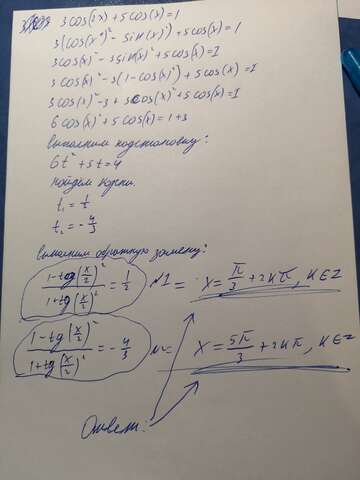 3cos(2x)+5cos(x)=1
3(cos(x)²-sin(x)²)+5cos(x)=1
3cos(x)²-3sin(x)²+5cos(x)=1
3cos(x)²-3(1-cos(x)²)+5cos(x)=1
3cos(x)²-3+3cos(x)²+5cos(x)=1
6cos(x)²+5cos(x)=1+3
Выполним подстановку:
6t²+5t=4
Найдём корни.
t₁=1/2
t₂=-4/3
Выполним обратную замену:
(1-tg(x/2)²)/(1+tg(x/2)²)=1/2 №1= x=π/3+2kπ, k∈Z
(1-tg(x/2)²)/(1+tg(x/2)²)=-4/3 x=5π/3+2kπ, k∈Z
Ответ: